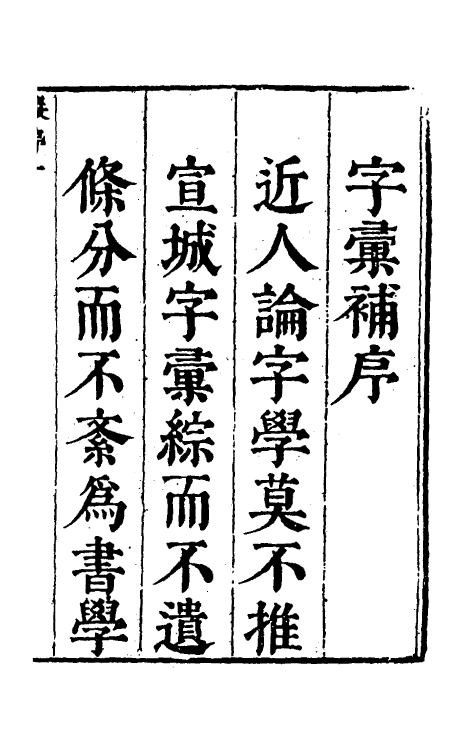 字彙補序
近人論字學莫不推
宣城字彙綜而不遺
條分而不紊爲書學